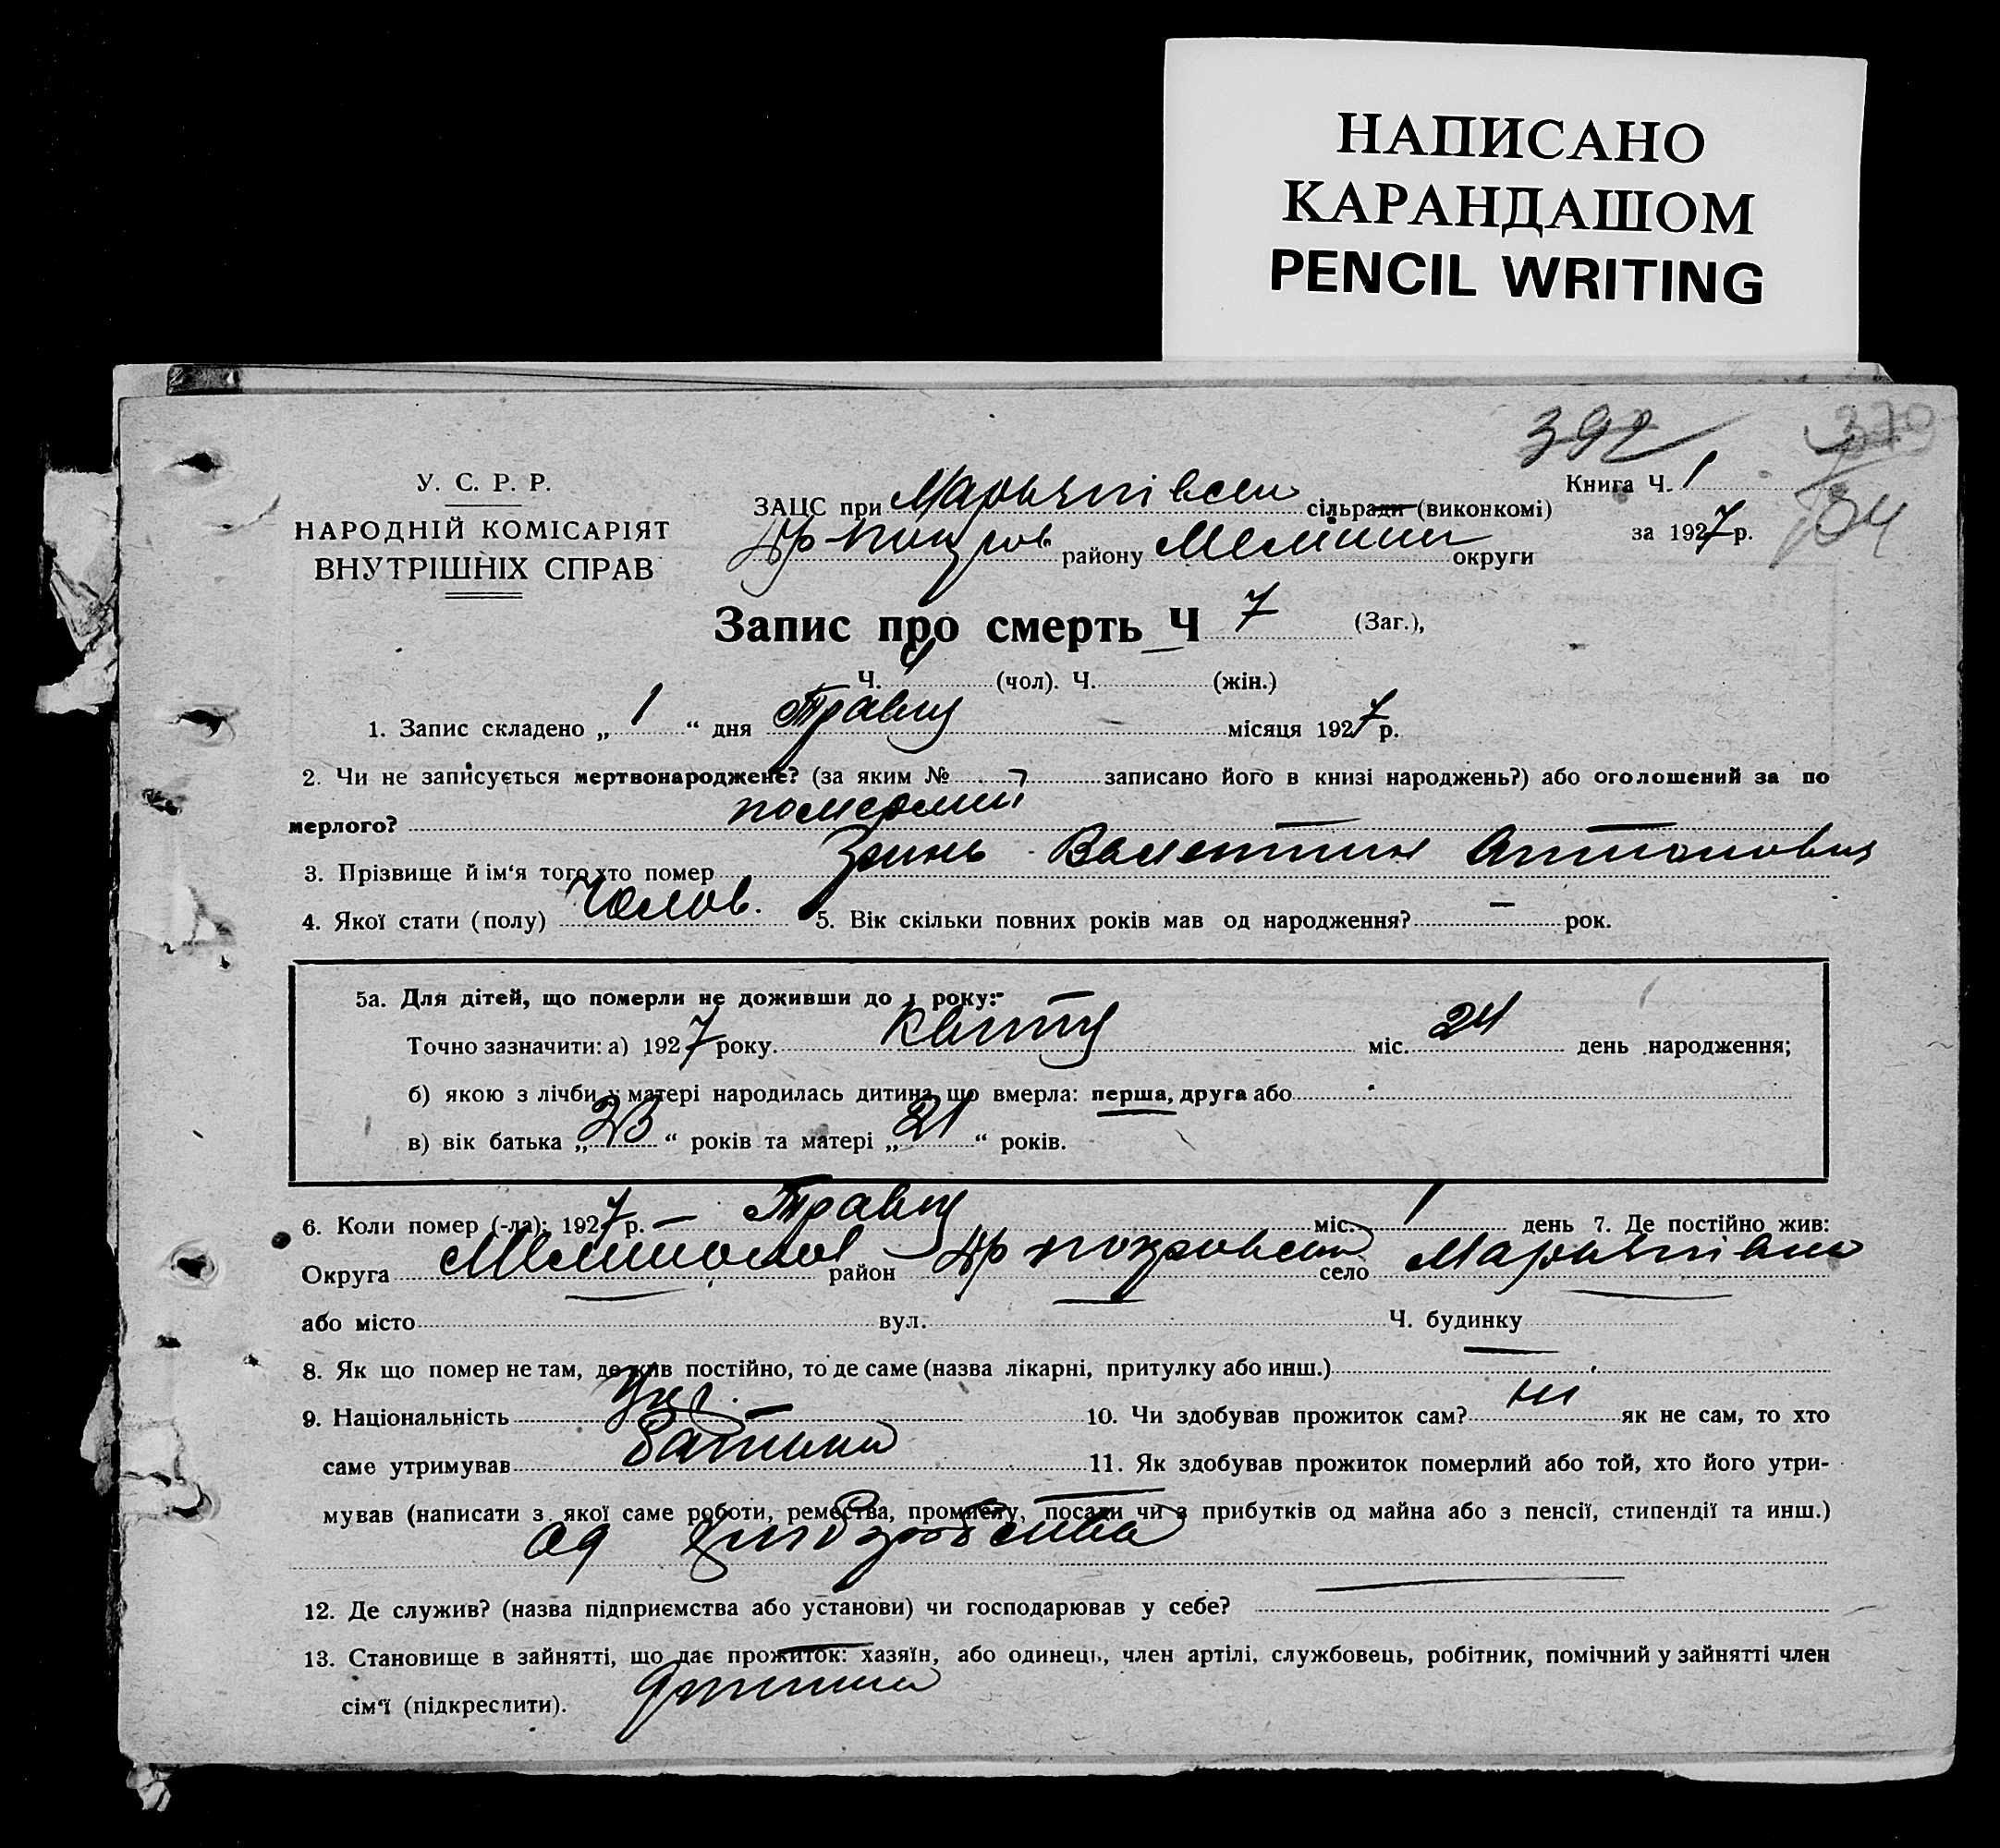 НАПИСАНО
КАРАНДАШОМ
PENCIL WRITING
392
370
104
У. С. Р. Р.
НАРОДНІЙ КОМІСАРІЯТ
ВНУТРІШНІХ СПРАВ
Книга Ч. 1
за 1927 р.
ЗАЦС при Марьянівськ сільради (виконкомі)
району Меліт округи
Запис про смерть Ч 7 (Заг.),
Ч. 4 (чол). Ч. (жін.)
1. Запис складено „ 1 “ дня Травня місяця 1927 р.
2. Чи не записується мертвонароджене? (за яким № записано його в книзі народжень?) або оголошений за по
мерлого? померлий
3. Прізвище й ім‘я того хто помер Зринь Валентин Антонович
4. Якої стати (полу) Чолов. 5. Вік скільки повних років мав од народження? — рок.
5а. Для дітей, що померли не доживши до 1 року:
Точно зазначити: а) 1927 року. Квітня міс. 24 день народження;
б) якою з лічби у матері народилась дитина що вмерла: перша, друга або
в) вік батька „ 23 “ років та матері „ 21 “ років.
6. Коли помер (-ла): 1927 р. — Травня міс. 1 день 7. Де постійно жив:
Округа Мелітопол район покровськ село Марьянівка
або місто вул. Ч. будинку
8. Як що помер не там, де жив постійно, то де саме (назва лікарні, притулку або инш.)
9. Національність Укр. 10. Чи здобував прожиток сам? ні як не сам, то хто
саме утримував Батько 11. Як здобував прожиток померлий або той, хто його утри-
мував (написати з якої саме роботи, ремества, промислу, посади чи з прибутків од майна або з пенсії, стипендії та инш.)
Од хліборобства
12. Де служив? (назва підприємства або установи) чи господарював у себе?
13. Становище в зайнятті, що дає прожиток: хазяїн, або одинець, член артілі, службовець, робітник, помічний у зайнятті член
сім‘ї (підкреслити). Дитина